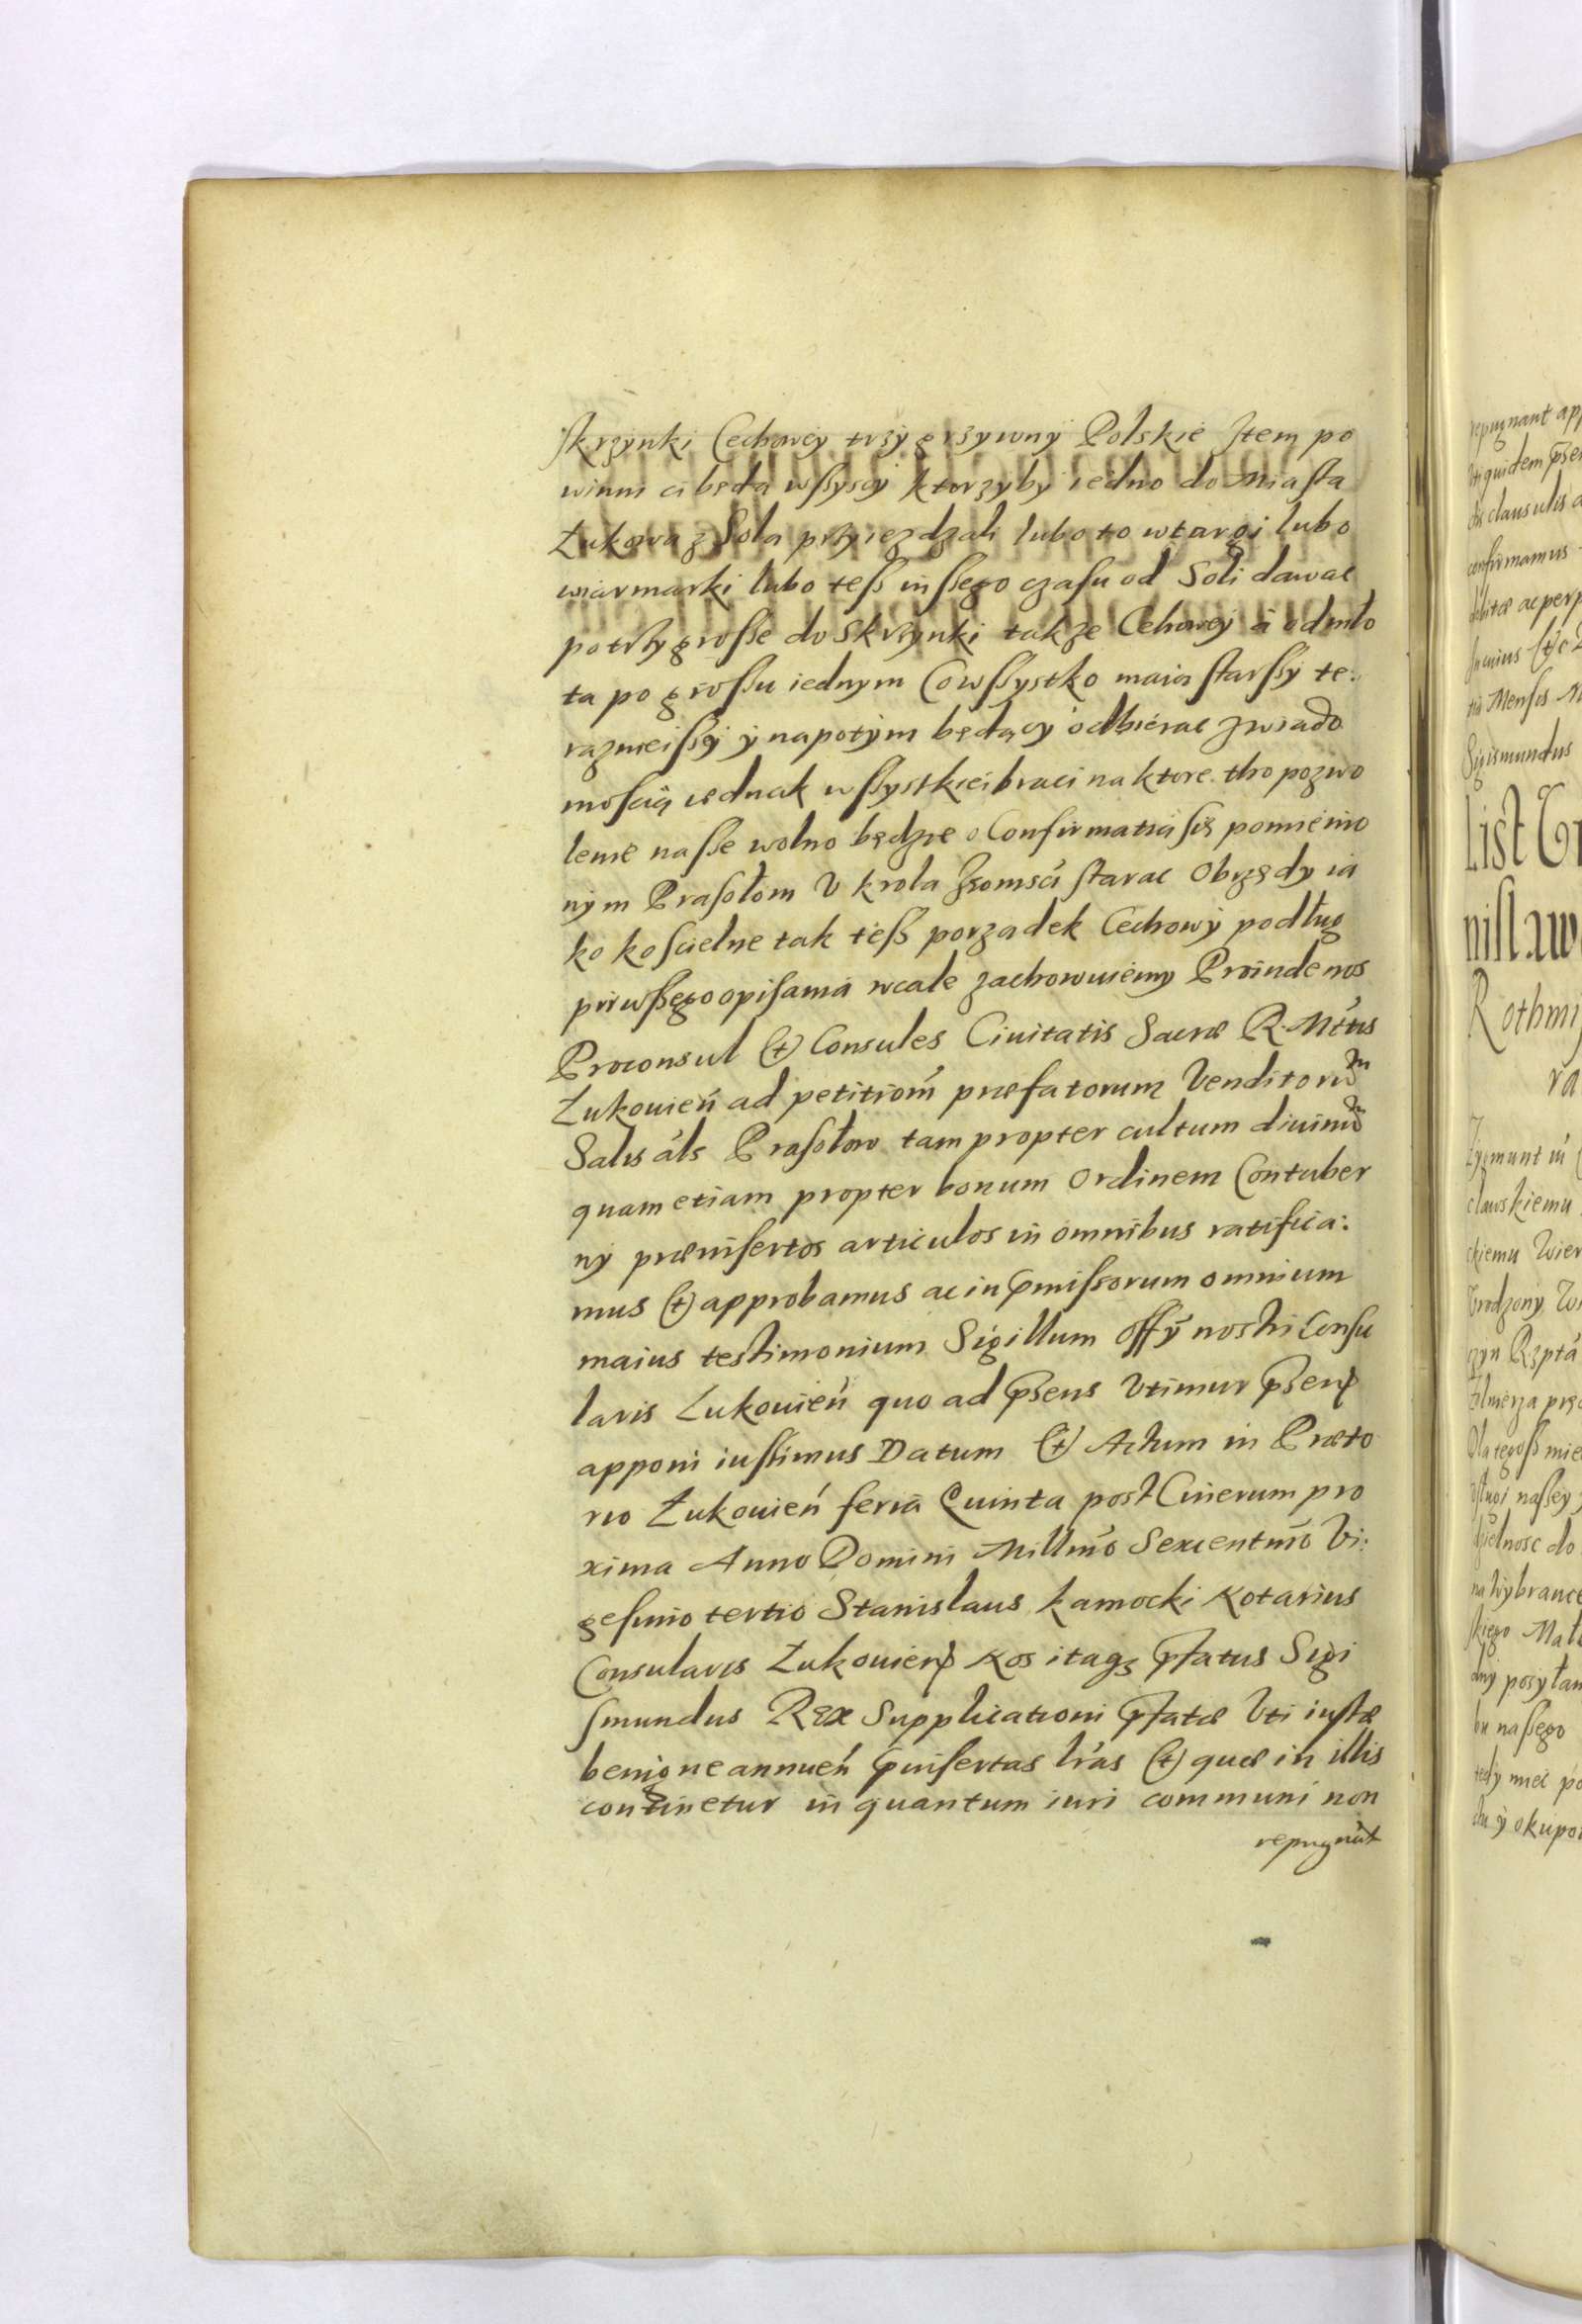 skrzynki Cechowey trzy grzywny Polskie Item po
winni ci będa wszyscy ktorzyby iedno do Miasta
Łukowa z Sola przyiezdzali lubo to w targi lubo
wiarmarki lubo tesz inszego czasu od Soli dawac
po trzy grosze do Skrzynki takze Cehowey a od mło
ta po groszu iednym Co wszystko maia starszy te:
raznieiszy y napotym będący odbierac z wiado
moscią iednak wszystkiei braci na ktore tho pozwo
lenie nasze wolno będzie o Confirmatia się pomienio
nym Prasołom V krola Jeomsci starac Obrzędy ia
ko koscielne tak tesz porzadek Cechowy podług
pirwszego opisania wcale zachowuiemy Proinde nos
Proconsul (et) Consules Ciuitatis Sacræ R. Mttis
Łukouień ad petitiom præfatorum Venditorum
Salis als Prasołow tam propter cultum diuinum
quam etiam propter bonum Ordinem Contuber
ny præinsertos articulos in omnibus ratifica:
mus (et) approbamus ac in pmissorum omnium
maius testimonium Sigillum Offy nostri Consu
laris Lukouień quo ad psens Vtimur psen
apponi iussimus Datum (et) Actum in Præto
rio Łukouień feria Quinta post Cinerum pro
xima Anno Domini Millmo Sexcentmo Vi:
gesimo tertio Stanislaus kamocki Notarius
Consularis Łukouien Nos itaq3 pfatus Sigi
smundus Rex Supplicationi pfatæ Vti iustæ
benigne annueń pinsertas lras (et) quæ in illis
continetur in quantum iuri communi non
repugnat
repugnant
clausulis
confirmamus
Mensis
Sigismundus
List
nisław
Zygmunt
nassey
nassego